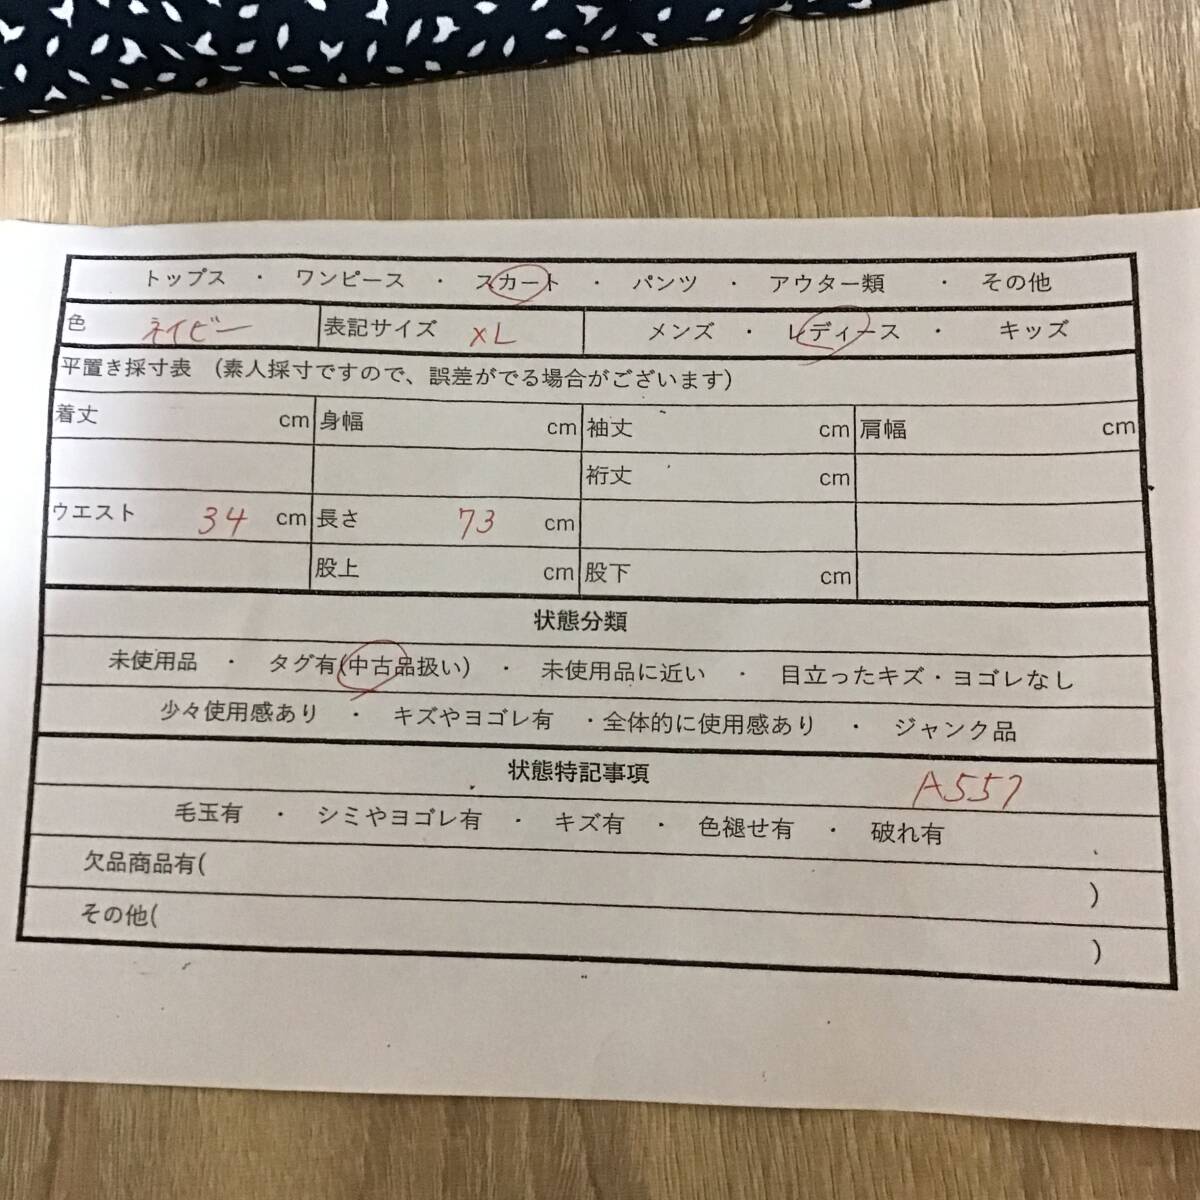 トップス ・ ワンピース ・ スカート ・ パンツ ・ アウター類 ・ その他
色 ネイビー 表記サイズ XL メンズ ・ レディース ・ キッズ
平置き採寸表 (素人採寸ですので、誤差がでる場合がございます)
着丈 cm 身幅 cm 袖丈 cm 肩幅 cm
裄丈 cm
ウエスト 34 cm 長さ 73 cm
股上 cm 股下 cm
状態分類
未使用品 ・ タグ有(中古品扱い) ・ 未使用品に近い ・ 目立ったキズ・ヨゴレなし
少々使用感あり ・ キズやヨゴレ有 ・全体的に使用感あり ・ ジャンク品
状態特記事項 A557
毛玉有 ・ シミやヨゴレ有 ・ キズ有 ・ 色褪せ有 ・ 破れ有
欠品商品有( )
その他( )